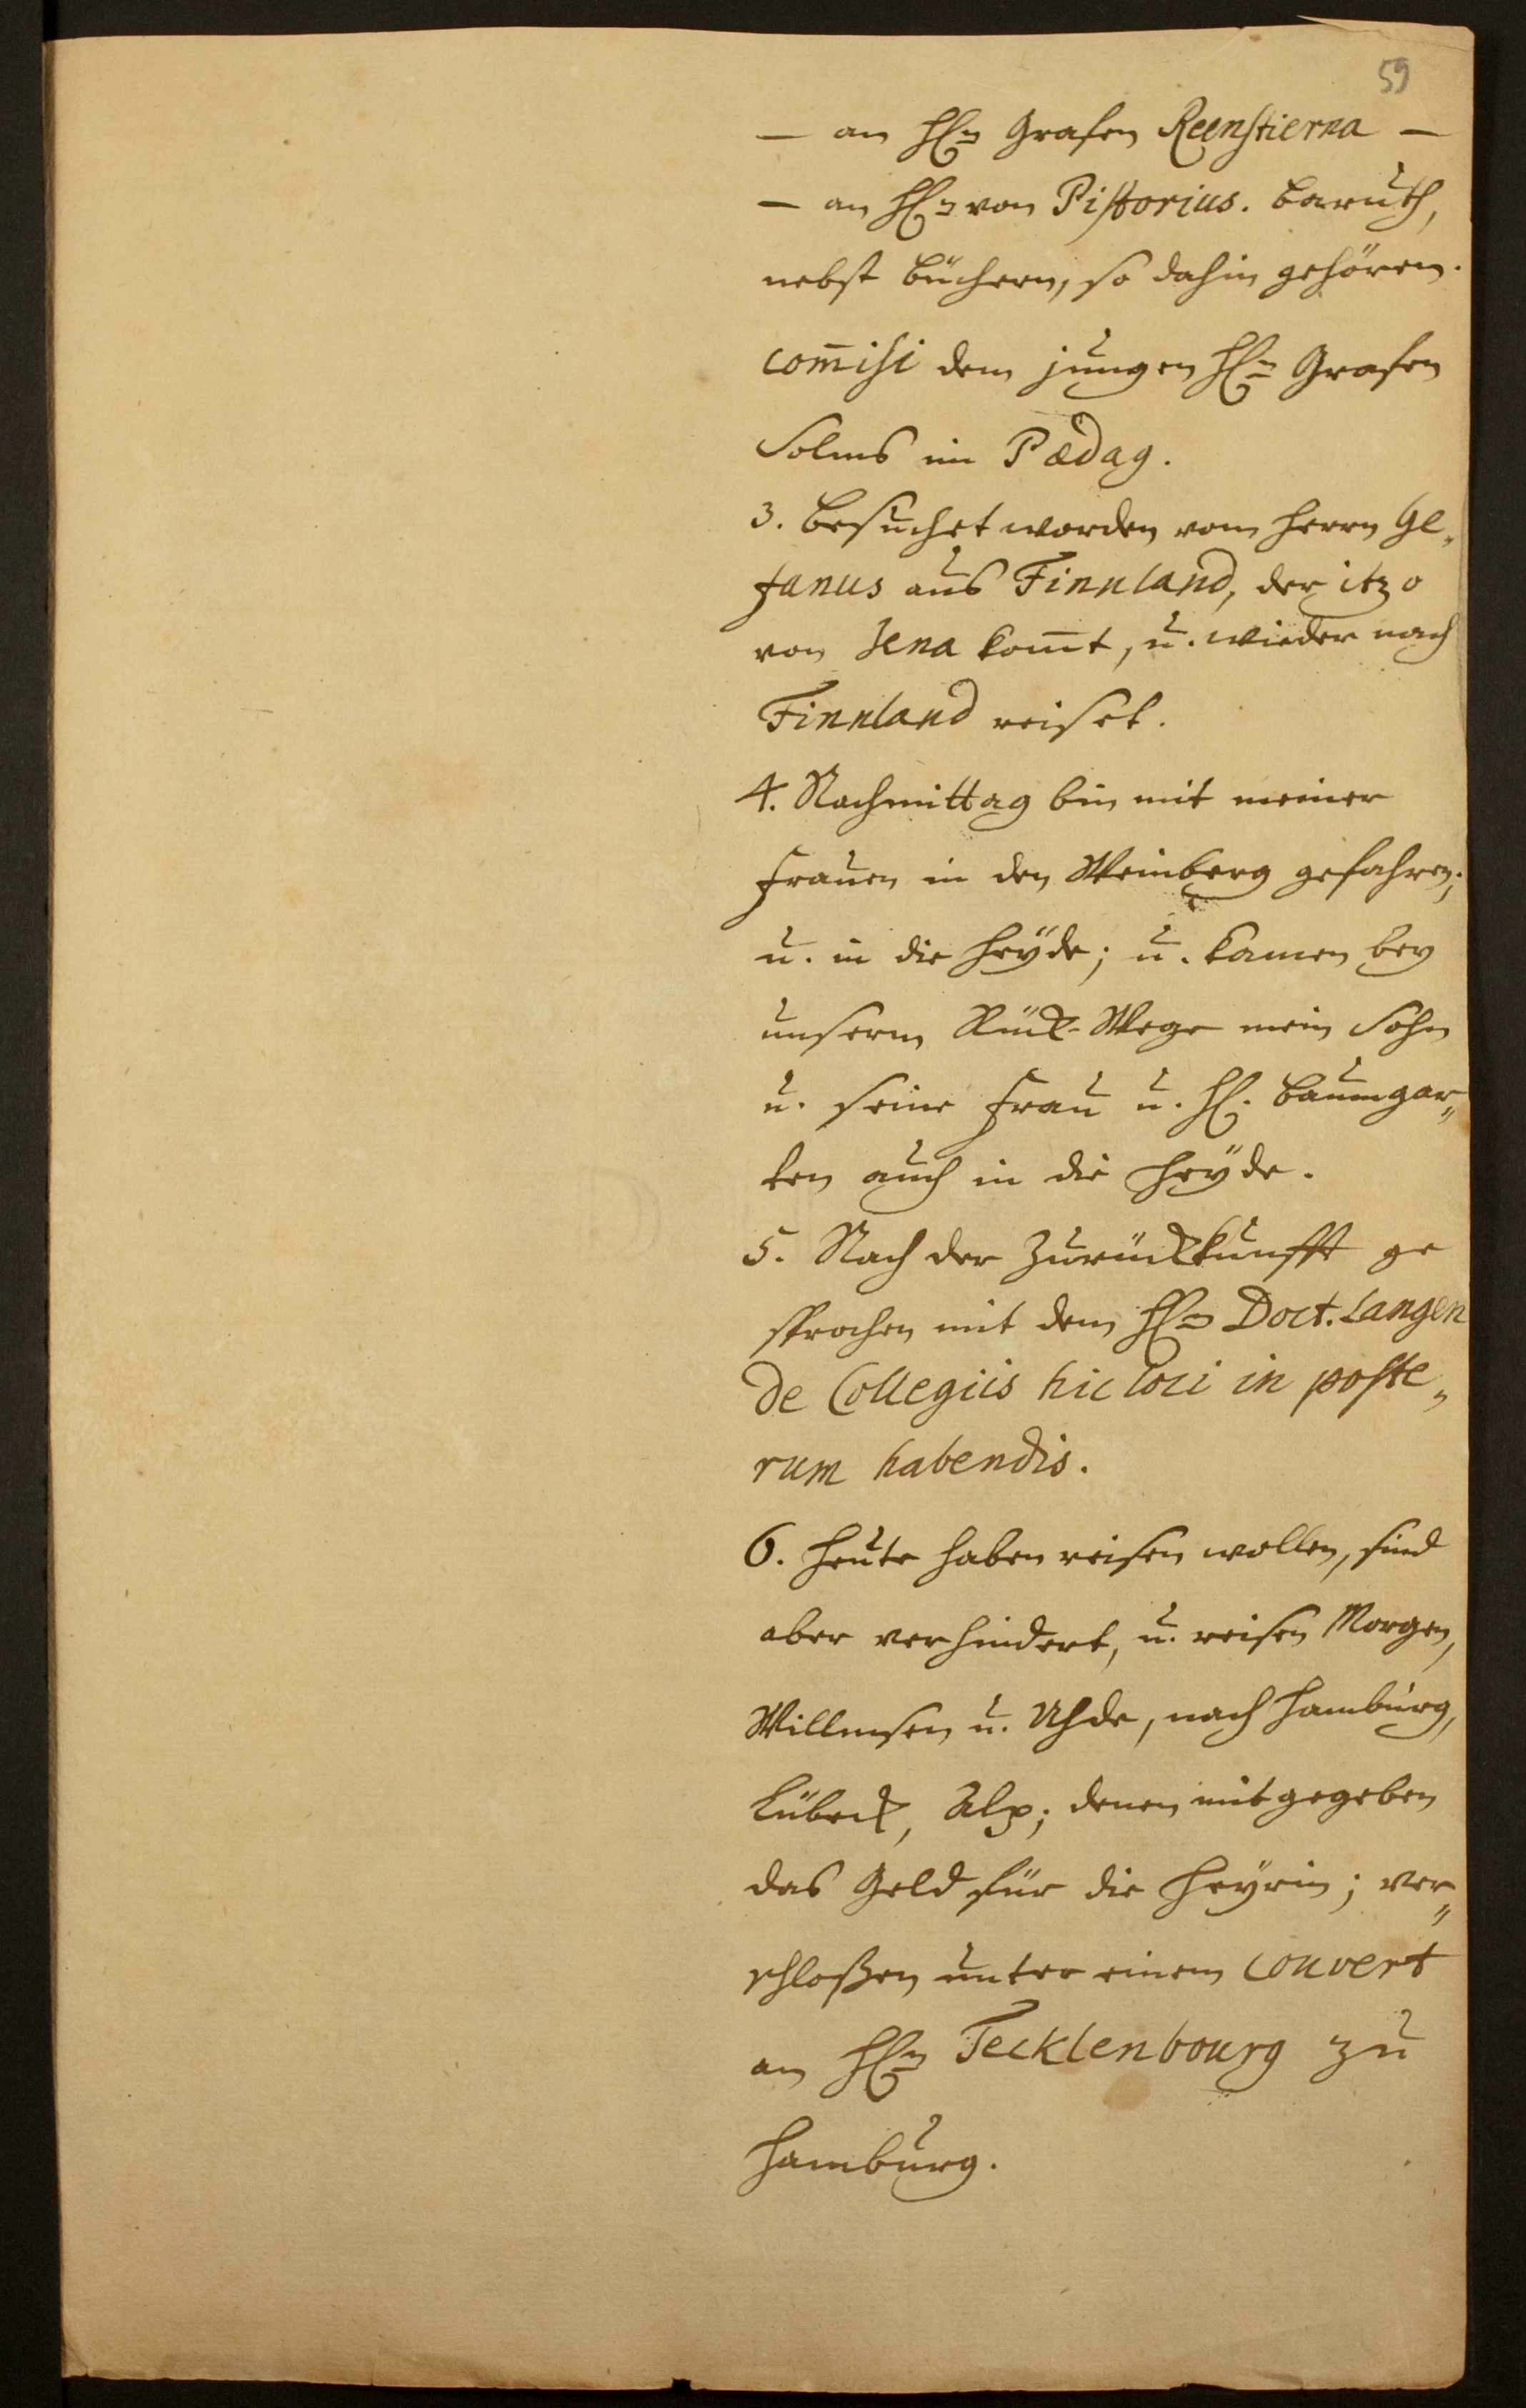 59
— an H&n Grafen Reenstierna —
— an H&n von Pistorius. Baruth,
nebst Büchern, so dahin gehören.
com̄isi dem jungen H&n Grafen
Solms im Pædag.
3. Besuchet worden vom Herrn Ge„
fanus aus Finnland, der itzo
von Jena kom̄t, u. wieder nach
Finnland reiset.
4. Nachmittag bin mit meiner
Frauen in den Weinberg gefahren;
u. in die Heyde; u. kamen bey
unserm Rück-Wege mein Sohn
u. seine Frau u. H. Baumgar„
ten auch in die Heyde.
5. Nach der Zurückkunfft ge
sprochen mit dem H&n Doct. Langen
de Collegiis hic loci in poste„
rum habendis.
6. Heute haben reisen wollen, sind
aber verhindert, u. reisen Morgen,
Willemsen u. Uhde, nach Hamburg,
Lübeck, denen mitgegeben
das Geld für die Heyrin; ver„
schloßen unter einem couvert
an H&n Tecklenbourg zu
Hamburg.